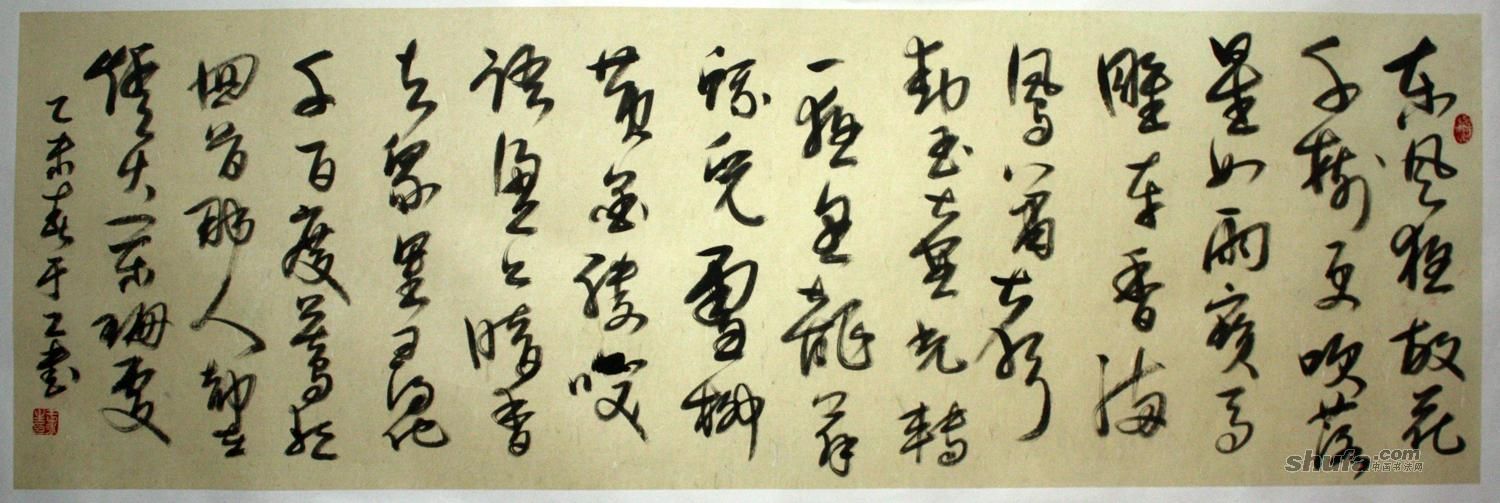 东风夜放花
千树更吹落
星如雨宝马
雕车香满
凤箫声
动玉壶光转
一夜鱼龙舞
蛾儿雪柳
黄金缕笑
语盈盈暗香
去众里寻他
千百度蓦然
回首那人却在
灯火阑珊处
乙未春于工书
shufa.com
中国书法网